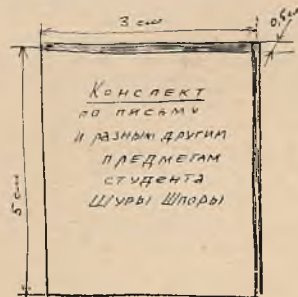 3 см
0,5 см
5 см
Конспект
по письму
и разным другим
предметам
студента
Шуры Шпоры